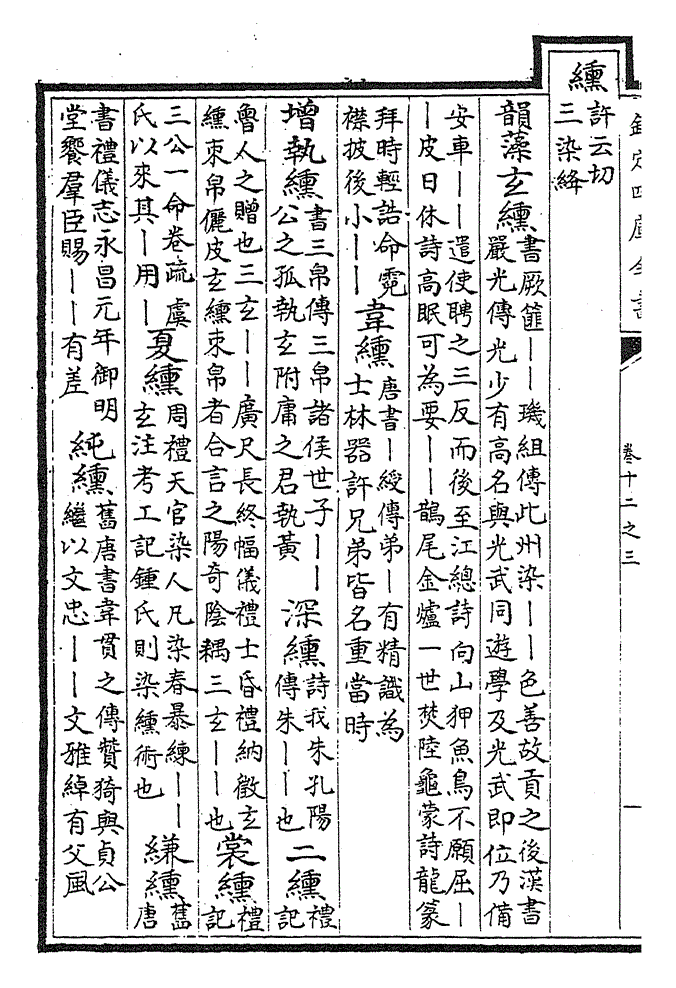 欽定四庫全書
卷十二之三
一
纁
許云切
三染絳
韻藻玄纁
書厥篚——璣組傳此州染——色善故貢之後漢書
嚴光傳光少有高名與光武同遊學及光武即位乃備
安車——遣使聘之三反而後至江總詩向山狎魚鳥不願屈—
—皮日休詩高眠可為要——鵲尾金爐一世焚陸龜蒙詩龍篆
拜時輕誥命霓
襟披後小——
韋纁
唐書—綬傳弟—有精識為
士林器許兄弟皆名重當時
增執纁
書三帛傳三帛諸侯世子——
公之孤執玄附庸之君執黃
深纁
詩我朱孔陽
傳朱——也
二纁
禮
記
魯人之贈也三玄——廣尺長終幅儀禮士昏禮納徵玄
纁束帛儷皮玄纁束帛者合言之陽奇陰耦三玄——也
裳纁
禮
記
三公一命卷疏虞
氏以來其—用—
夏纁
周禮天官染人凡染春暴練——
玄注考工記鍾氏則染纁術也
縑纁
舊
唐
書禮儀志永昌元年御明
堂饗羣臣賜——有差
純纁
舊唐書韋貫之傳贊猗與貞公
繼以文忠——文雅綽有父風